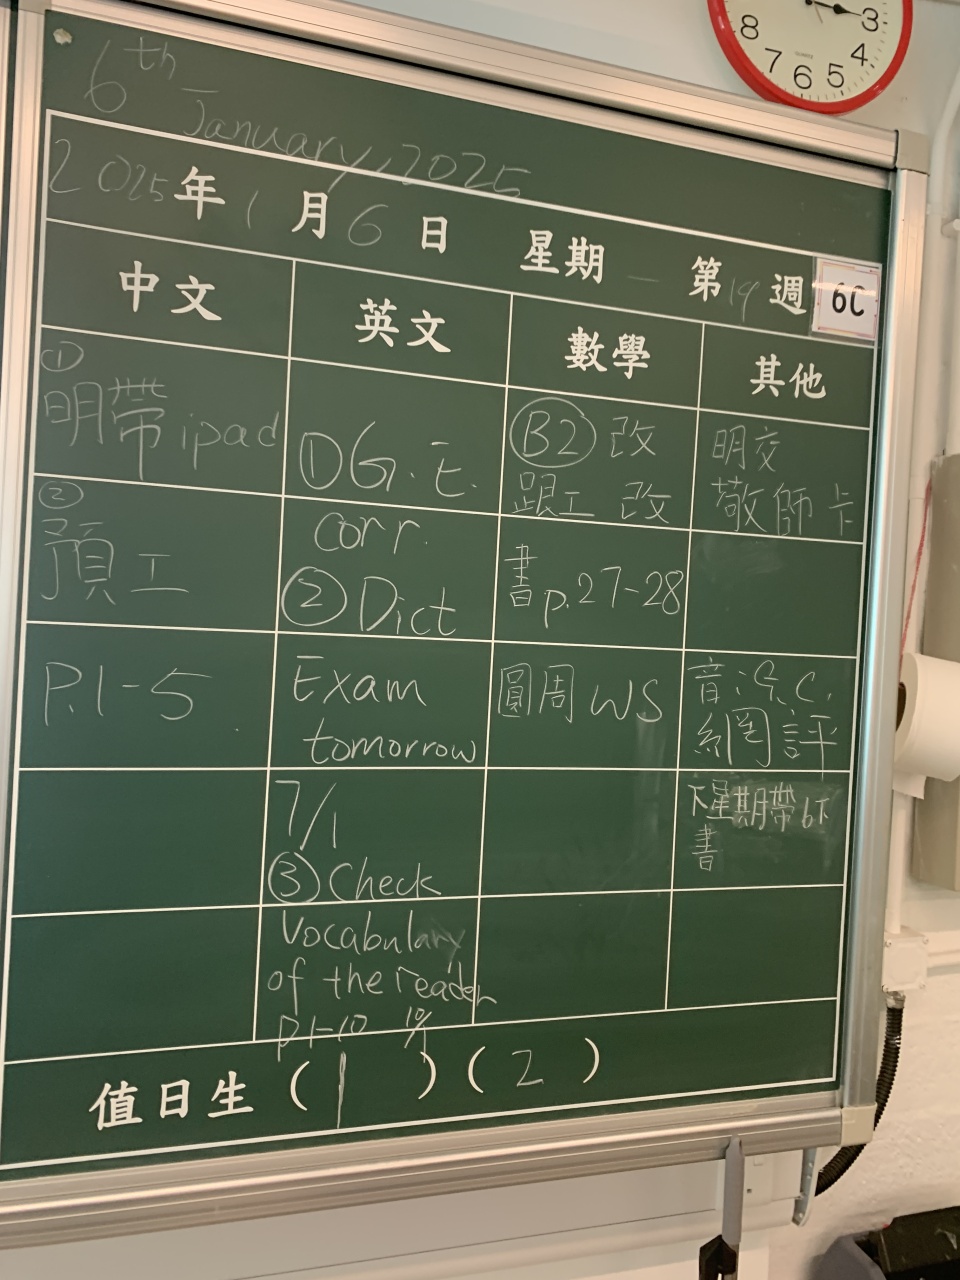 8 7 6 5 4 3
6th January, 2025
2025年1月6日 星期一 第19週 6C
中文
①
明帶ipad
②
預工
P.1-5
英文
①G.E.
corr.
②Dict
Exam
tomorrow
7/1
③Check
Vocabulary
of the reader
p1-10 10/1
數學
B2 改
跟工 改
書p.27-28
圓周WS
其他
明交
敬師卡
音:G.C.
網評
下星期帶6下
書
值日生(1)(2)